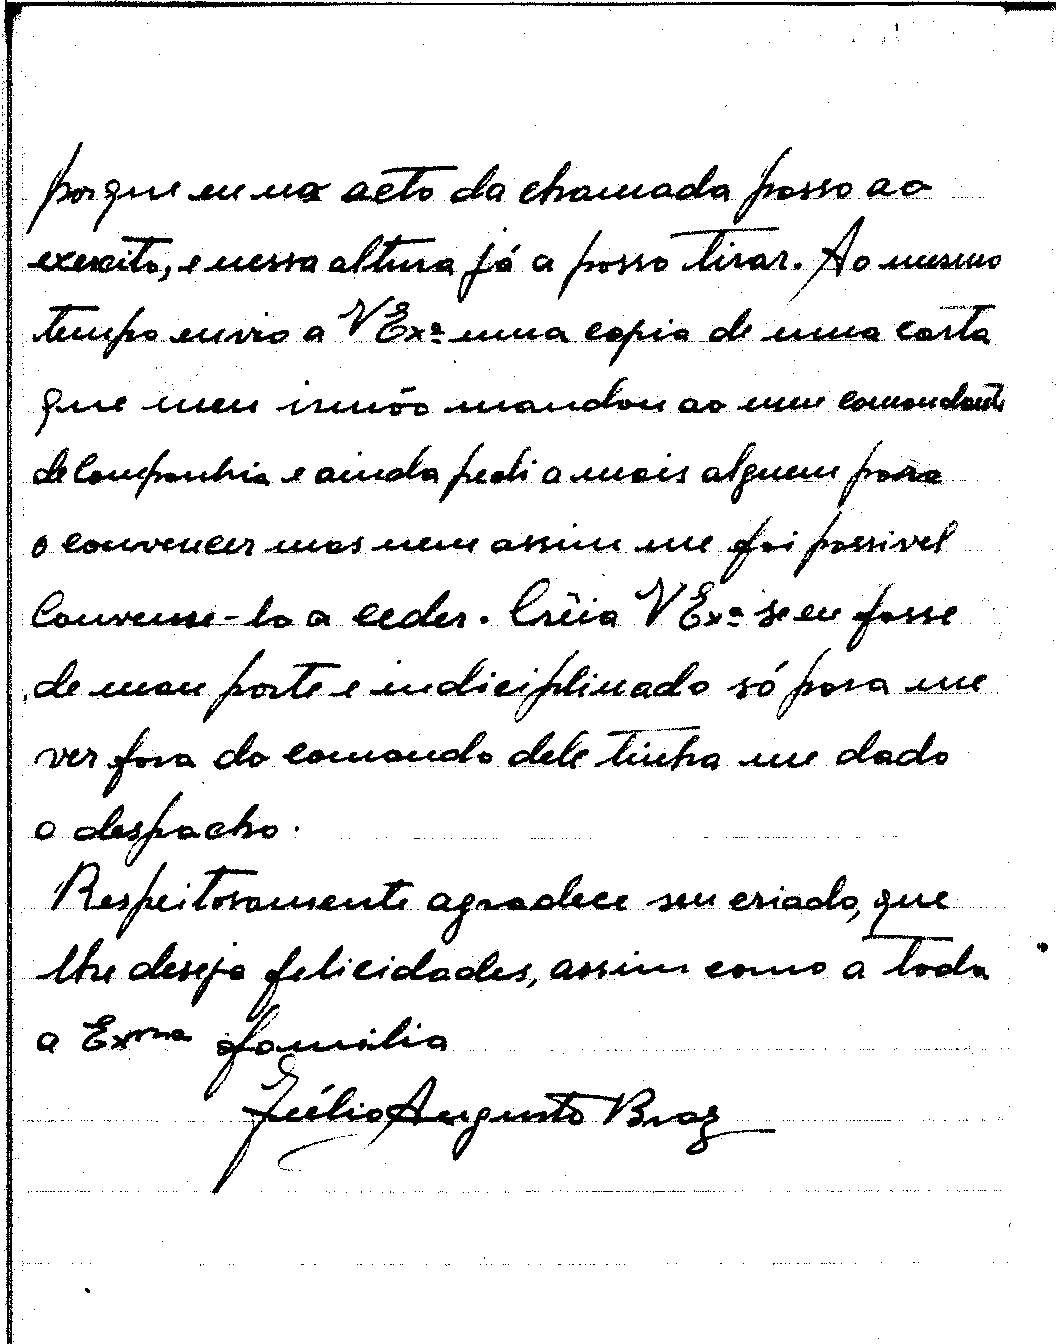 porque em no acto da chamada passo ao
exercito, e nessa altura já a posso tirar. Ao mesmo
tempo envio a V Exª uma copia de uma carta
que meu irmão mandou ao meu comandante
de Companhia e ainda pedi a mais alguem para
o convencer mas nem assim me foi possivel
Convense-lo a ceder. Crêia V Exª se eu fosse
de mau porte e indiciplinado só para me
ver fora do comando dele tinha me dado
o despacho.
Respeitosamente agradece seu criado, que
lhe deseja felicidades, assim como a toda
a Exma familia
Júlio Augusto Braz